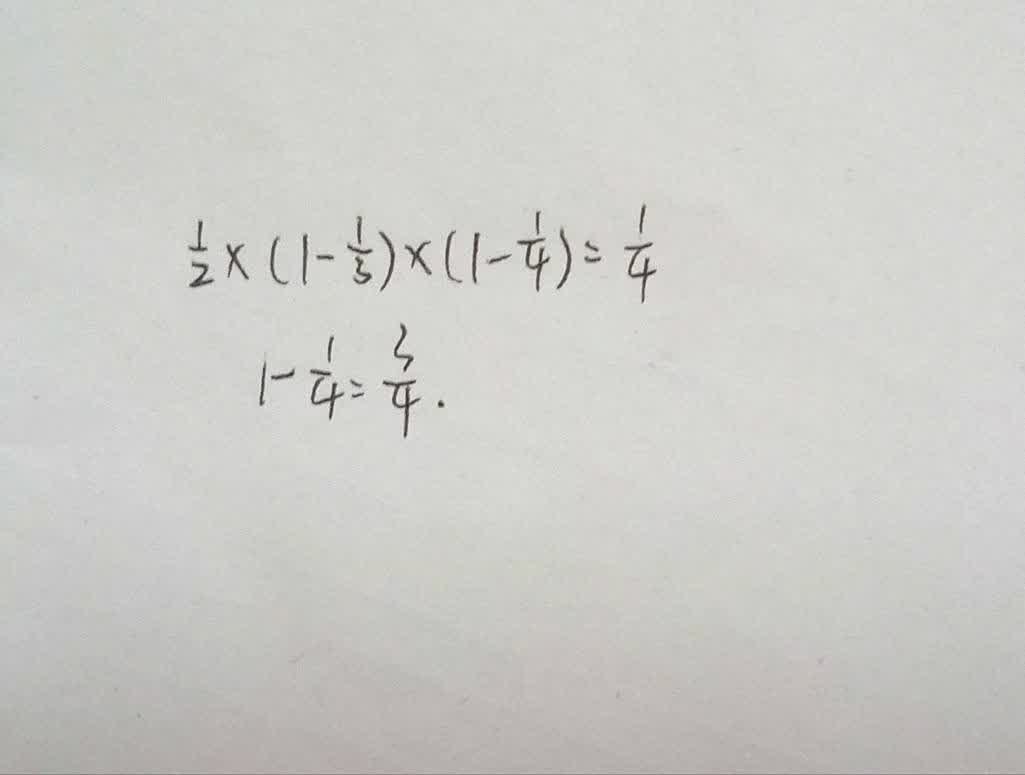 1/2 × (1 - 1/3) × (1 - 1/4) = 1/4
1 - 1/4 = 3/4 .